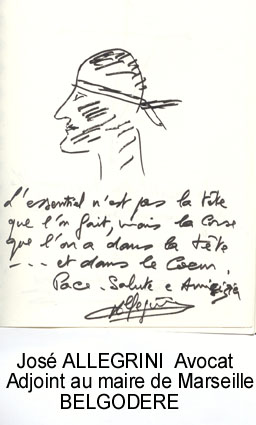 L'essentiel n'est pas la tête
que l'on fait, mais la Corse
que l'on a dans la tête
--- et dans le Coeur.
Pace. Salute e Amicizia
Allegrini
José ALLEGRINI Avocat
Adjoint au maire de Marseille
BELGODERE